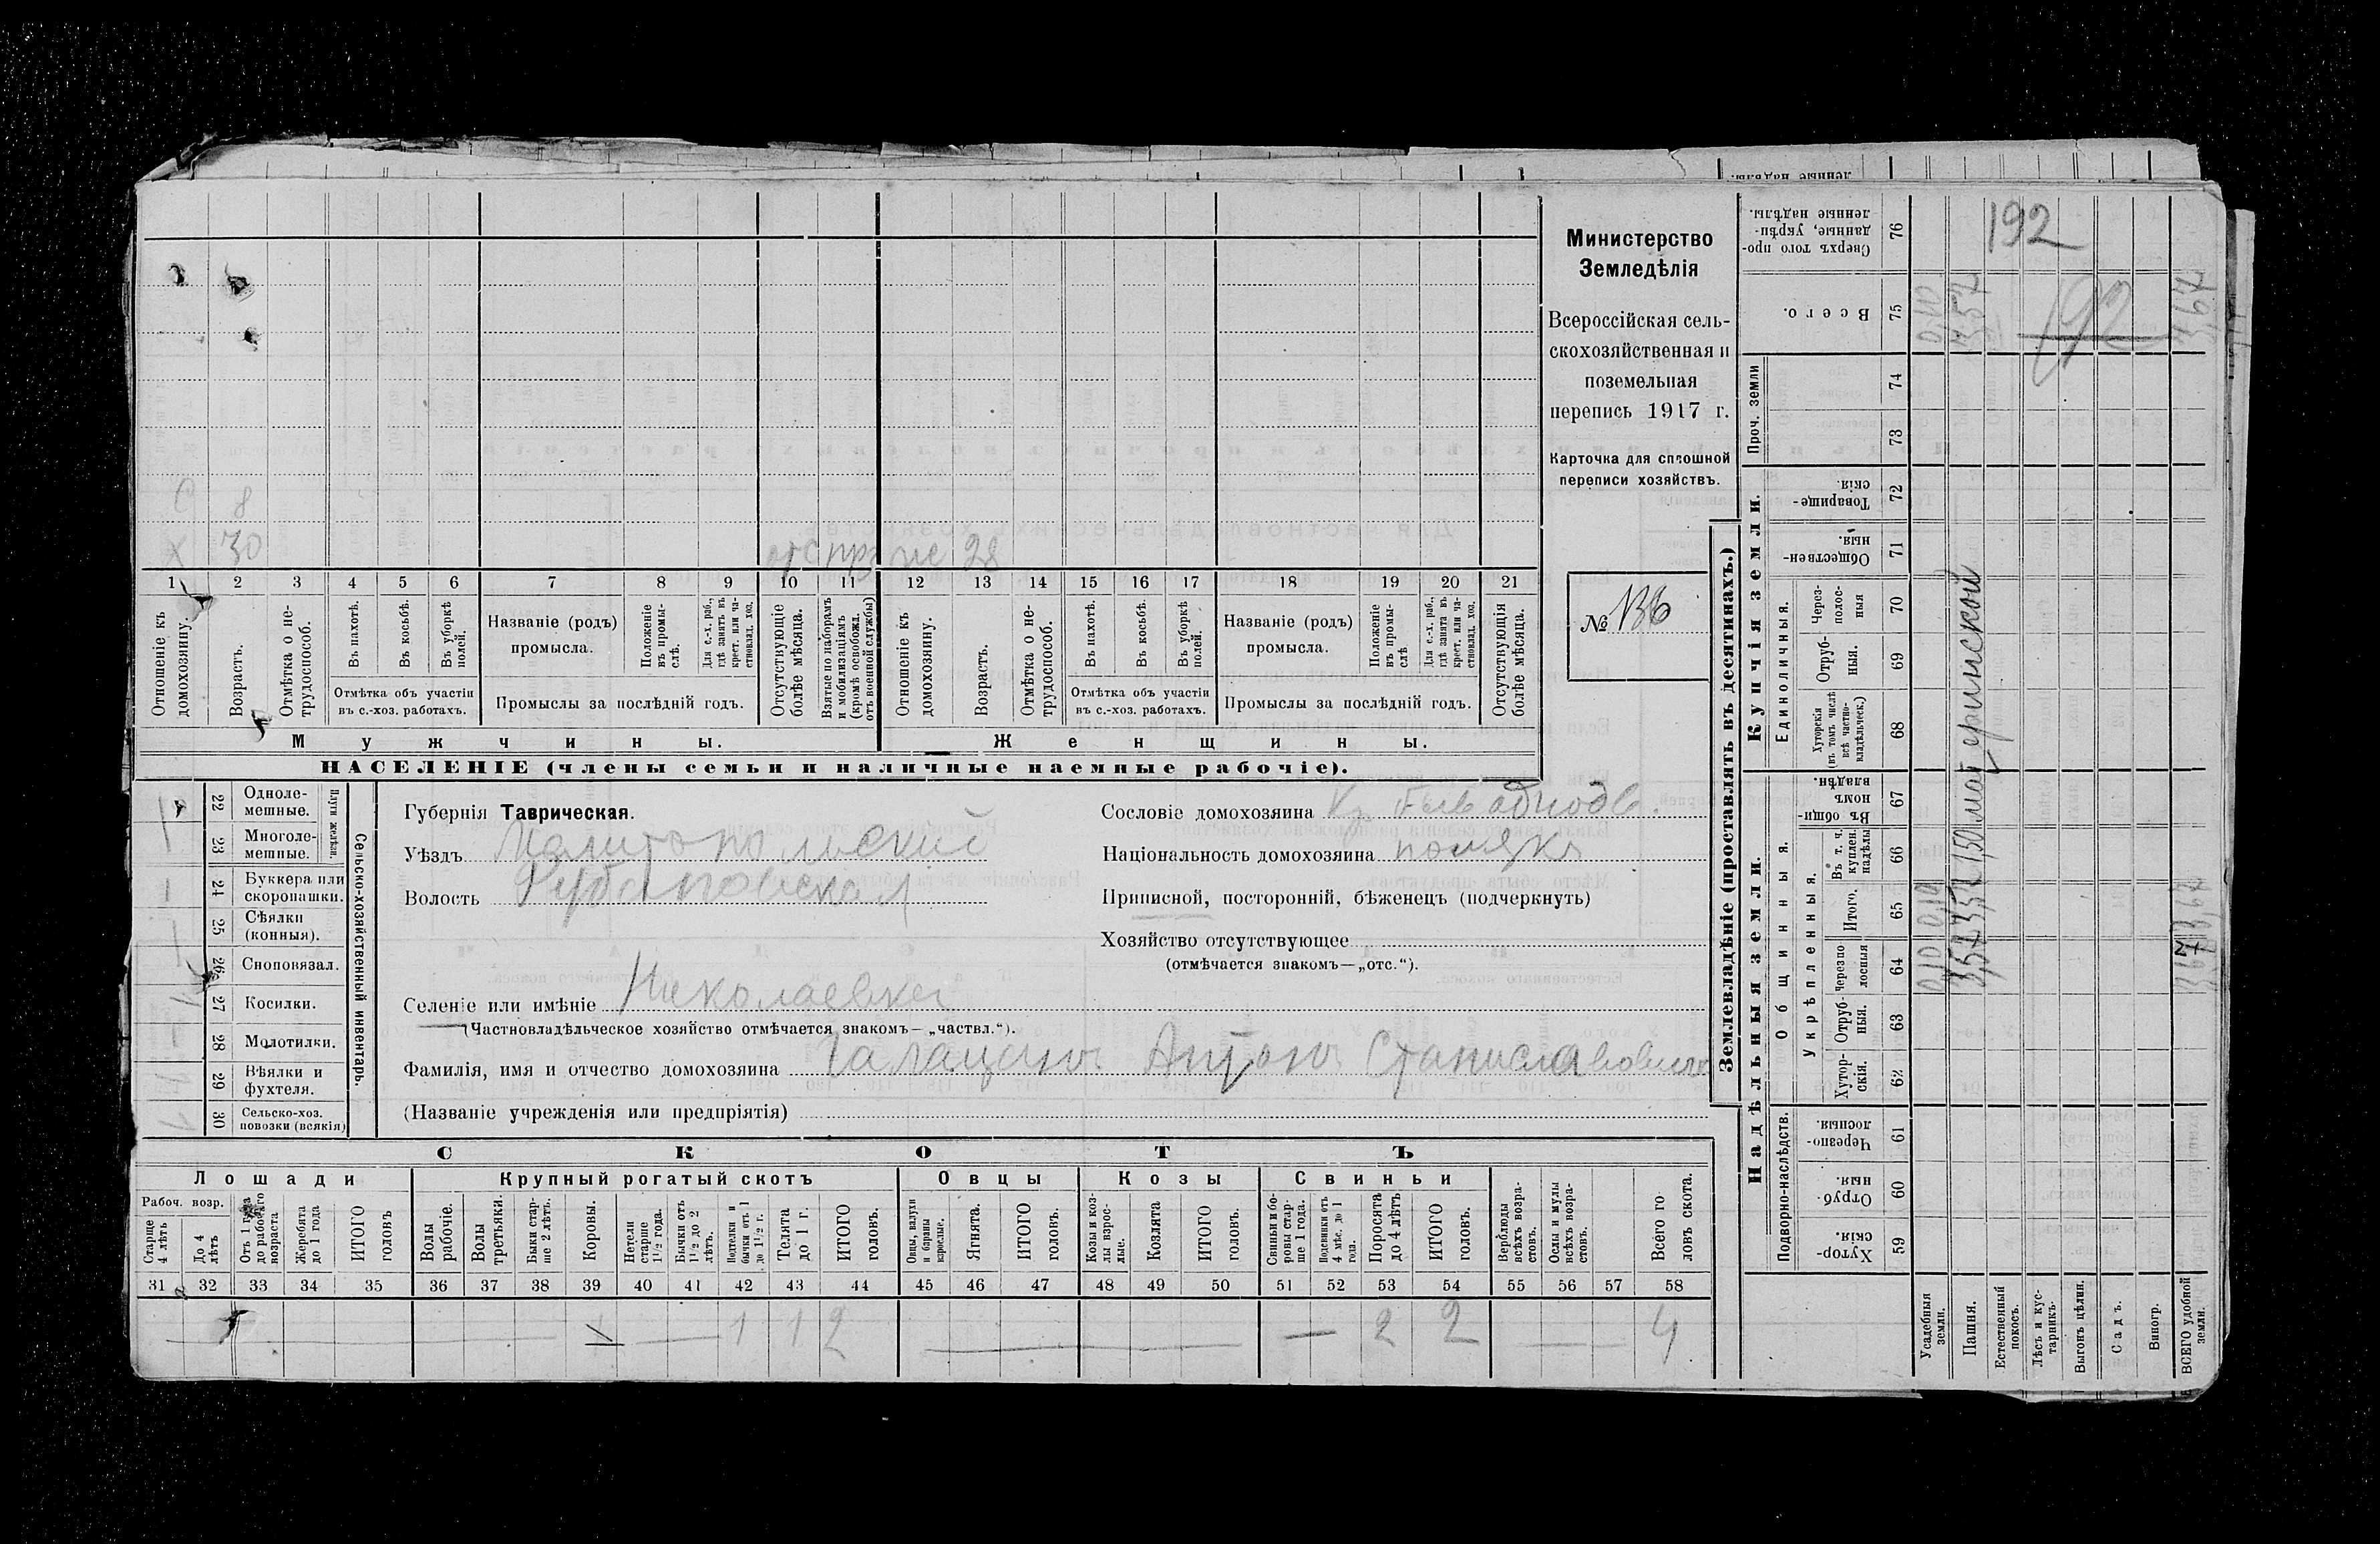 Министерство
Земледѣлія
Всероссійская сель-
скохозяйственная и
поземельная
перепись 1917 г.
Карточка для сплошной
переписи хозяйствъ.
№ 136
8
30
28
1 2 3 4 5 6 7 8 9 10 11 12 13 14 15 16 17 18 19 20 21
Отношеніе къ домохозяину.
Возрастъ.
Отмѣтка о не-трудоспособ.
Въ пахотѣ.
Въ косьбѣ.
Въ уборкѣ полей.
Отмѣтка объ участіи
въ с.-хоз. работахъ.
Названіе (родъ)
промысла.
Положеніе въ промы-слѣ.
Для с.-х. раб., гдѣ занятъ въ крест. или ча-стновлад. хоз.
Промыслы за послѣдній годъ.
Отсутствующіе болѣе мѣсяца.
Взятые по наборамъ и мобилизаціямъ (кромѣ освобожд. отъ военной службы)
Отношеніе къ домохозяину.
Возрастъ.
Отмѣтка о не-трудоспособ.
Въ пахотѣ.
Въ косьбѣ.
Въ уборкѣ полей.
Отмѣтка объ участіи
въ с.-хоз. работахъ.
Названіе (родъ)
промысла.
Положеніе въ промы-слѣ
Для с.-х. раб., гдѣ занята въ крест. или ча-стновлад. хоз.
Промыслы за послѣдній годъ.
Отсутствующія болѣе мѣсяца.
Мужчины.
Женщины.
НАСЕЛЕНІЕ (члены семьи и наличные наемные рабочіе).
22 Одноле-мешные.
23 Многоле-мешные.
Плуги желѣзн.
24 Буккера или скоропашки.
25 Сѣялки (конныя).
26 Сноповязал.
27 Косилки.
28 Молотилки.
29 Вѣялки и фухтеля.
30 Сельско-хоз. повозки (всякія)
Сельско-хозяйственный инвентарь.
Губернія Таврическая.
Уѣздъ Мелитопольский
Волость Рубановская
Селеніе или имѣніе Николаевка
(Частновладѣльческое хозяйство отмѣчается знакомъ—„частвл.“).
Фамилія, имя и отчество домохозяина Галацанъ Антонъ Станиславовичъ
(Названіе учрежденія или предпріятія)
Сословіе домохозяина Кр. быв однодв.
Національность домохозяина полякъ
Приписной, посторонній, бѣженецъ (подчеркнуть)
Хозяйство отсутствующее
(отмѣчается знакомъ—„отс.“).
СКОТЪ
Лошади
Рабоч. возр.
Старше 4 лѣтъ
До 4 лѣтъ
Отъ 1 года до рабочаго возраста
Жеребята до 1 года
ИТОГО головъ
Крупный рогатый скотъ
Волы рабочіе.
Волы третьяки.
Быки стар-ше 2 лѣтъ.
Коровы.
Нетели старше 1½ года.
Бычки отъ 1½ до 2 лѣтъ.
Подтелки и бычки отъ 1 до 1½ г.
Телята до 1 г.
ИТОГО головъ.
Овцы
Овцы, валухи и бараны взрослые.
Ягнята.
ИТОГО головъ.
Козы
Козы и коз-лы взрос-лые.
Козлята
ИТОГО головъ.
Свиньи
Свиньи и бо-ровы стар-ше 1 года.
Подсвинки отъ 4 мѣс. до 1 года.
Поросята до 4 лѣтъ
ИТОГО головъ.
Верблюды всѣхъ возра-стовъ.
Ослы и мулы всѣхъ возра-стовъ.
Всего го ловъ скота.
31 32 33 34 35 36 37 38 39 40 41 42 43 44 45 46 47 48 49 50 51 52 53 54 55 56 57 58
1 1 2 2 2 4
Землевладѣніе (проставлять въ десятинахъ.)
Надѣльныя земли.
Купчія земли.
Проч. земли
Подворно-наслѣдств.
Общинныя.
Укрѣпленныя.
Единоличныя.
Сверхъ того про-данные, укрѣп-ленные надѣлы. 76
Всего. 75
74
73
Товарище-скія. 72
Обществен-ныя. 71
Через-полос-ныя 70
Отруб-ныя. 69
Хуторскія (въ томъ числѣ всѣ частно-владѣльческ.) 68
Въ общи-номъ владѣн. 67
Въ т. ч. куплен. надѣлы 66
Итого. 65
Черезпо лосныя 64
Отруб-ныя. 63
Хутор-скія. 62
Черезпо-лосныя. 61
Отруб-ныя. 60
Хутор-скія. 59
Усадебныя земли.
Пашня.
Естественный покосъ.
Лѣсъ и кус-тарникъ.
Выгонъ цѣлин.
Садъ.
Виногр.
ВСЕГО удобной земли.
192
192
0,10 0,10 0,10
3,57 3,57 1,50 материнской 3,57
3,67 3,67 3,67